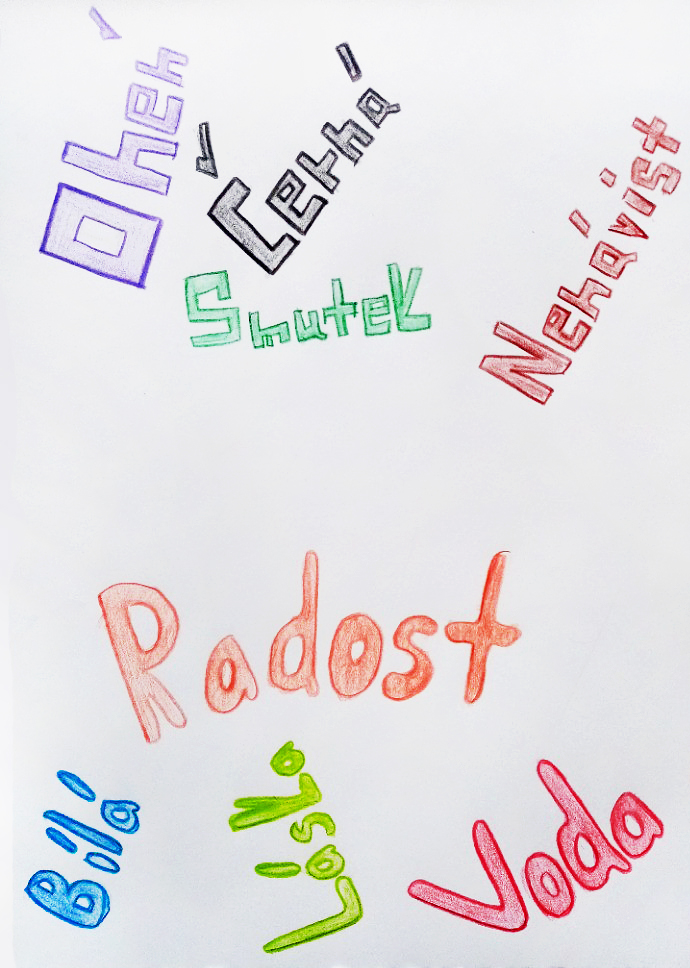 Oheň
Černá
Nenávist
Smutek
Radost
Bílá
Láska
Voda